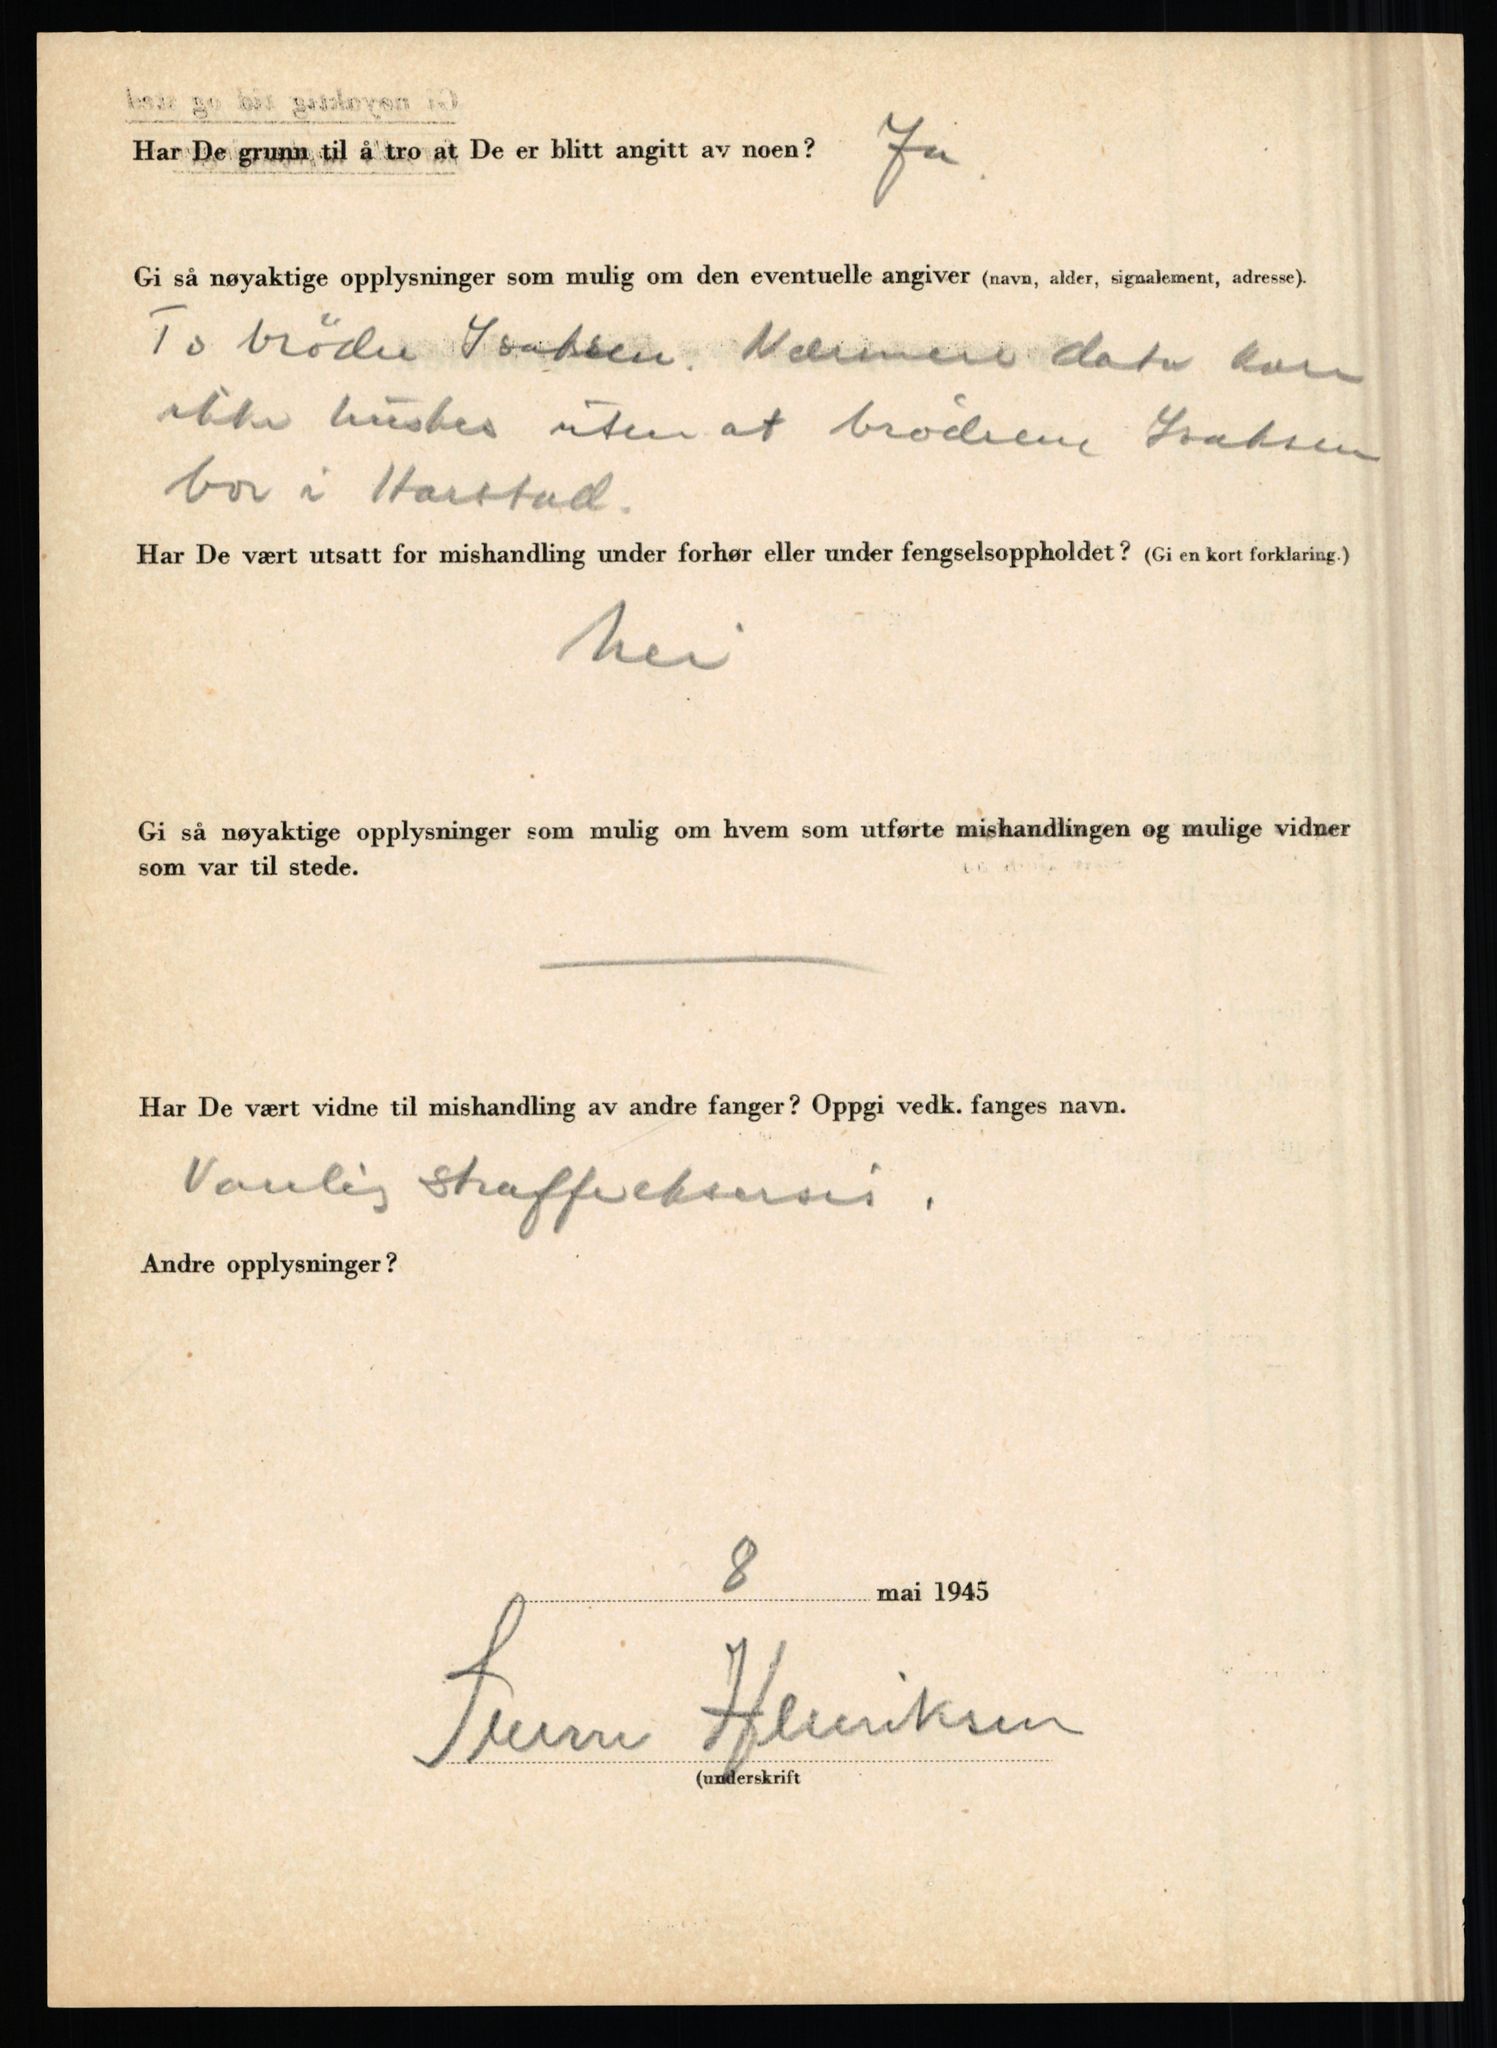 Gi nøyaktig tid og sted
Har De grunn til å tro at De er blitt angitt av noen? Ja.
Gi så nøyaktige opplysninger som mulig om den eventuelle angiver (navn, alder, signalement, adresse).
To brödre Isaksen. Nærmere data kan
ikke huskes uten at brödrene Isaksen
bor i Harstad.
Har De vært utsatt for mishandling under forhør eller under fengselsoppholdet? (Gi en kort forklaring.)
Nei
Gi så nøyaktige opplysninger som mulig om hvem som utførte mishandlingen og mulige vidner
som var til stede.
Har De vært vidne til mishandling av andre fanger? Oppgi vedk. fanges navn.
Vanlig straffeeksersis.
Andre opplysninger?
8 mai 1945
Henriksen
(underskrift